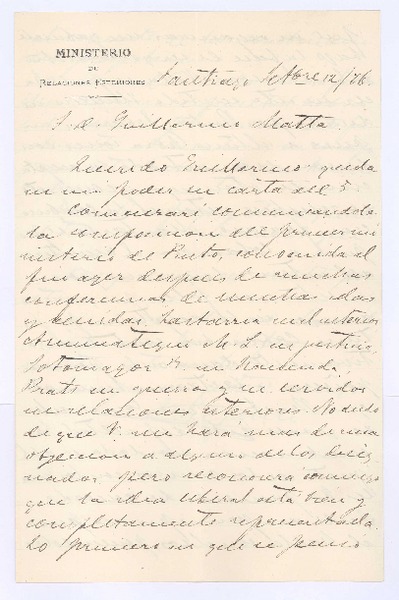 MINISTERIO
DE
RELACIONES ESTERIORES
Santiago Setbre 12/76.
S. D. Guillermo Matta.
Querido Guillermo queda
en mi poder su carta del 5.
Comenzaré comunicándole
la composicion del primer mi
nisterio de Pinto, convenida al
fin ayer despues de muchas
conferencias de muchas idas
y venidas. Lastarria en el interior
Amunátegui M. L. en justicia
Sotomayor R. en Hacienda,
Prats en guerra y su servidor
en relaciones esteriores. No dudo
de que V. me hará mas de una
objecion a alguno de los desig
nados, pero reconocerá conmigo
que la idea liberal está bien y
completamente representada.
Lo primero en que se pensó